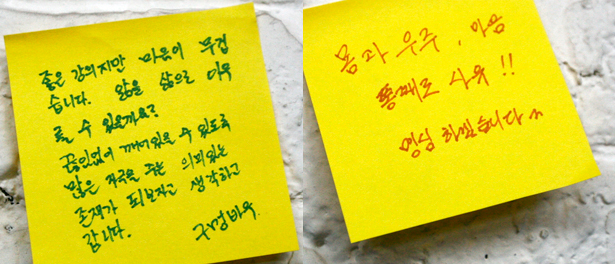 좋은 강의지만 마음이 무겁
습니다. 앎을 삶으로 이룩
할 수 있을까요?
끊임없이 깨어있을 수 있도록
많은 자극을 주는 의미있는
존재가 되보자고 생각하고
갑니다.
몸과 우주, 마음
통째로 사유!!
명심 하겠습니다